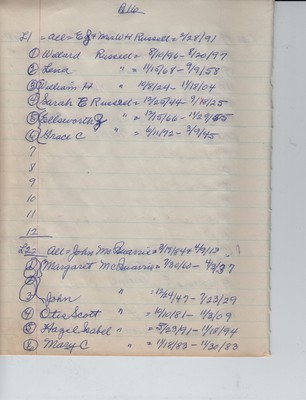 B16
L1 - all = E J + Mrs W H Russell = 2/28/91
① Willard Russell = 8/10/96 - 8/20/97
② Lena " = 11/15/68 - 9/9/58
③ William H " = 14/8/24 - 11/18/04
④ Sarah E Russell = 12/25/44 - 9/18/25
⑤ Ellsworth J " = 12/15/66 - 11/29/55
⑥ Grace C " = 6/11/72 - 3/9/45
7
8
9
10
11
12
L2 = All = John McQuarrie = 3/19/84 +
① Margaret McQuarrie = 7/30/60 - 4/2/37
②
3 John " = 12/24/47 - 7/23/29
④ Otis Scott " = 10/10/81 - 1/2/09
⑤ Hazel Isabel " = 5/23/91 - 11/18/94
⑥ Mary C " = 11/18/83 - 11/30/83